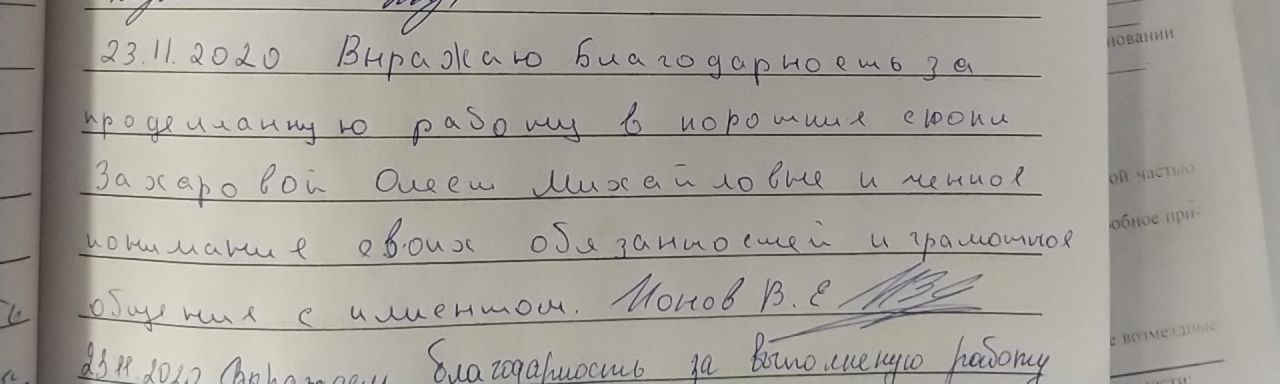 23.11.2020 Выражаю благодарность за
проделланную работу в хорошие сроки
Захаровой Олеси Михайловне и
понимание своих обязанностей и грамотное
общения с клиентом. Ионов В. Е
23.11.2020 благодарность за выполненую работу
новании
ой частью
обное при-
е возмездные